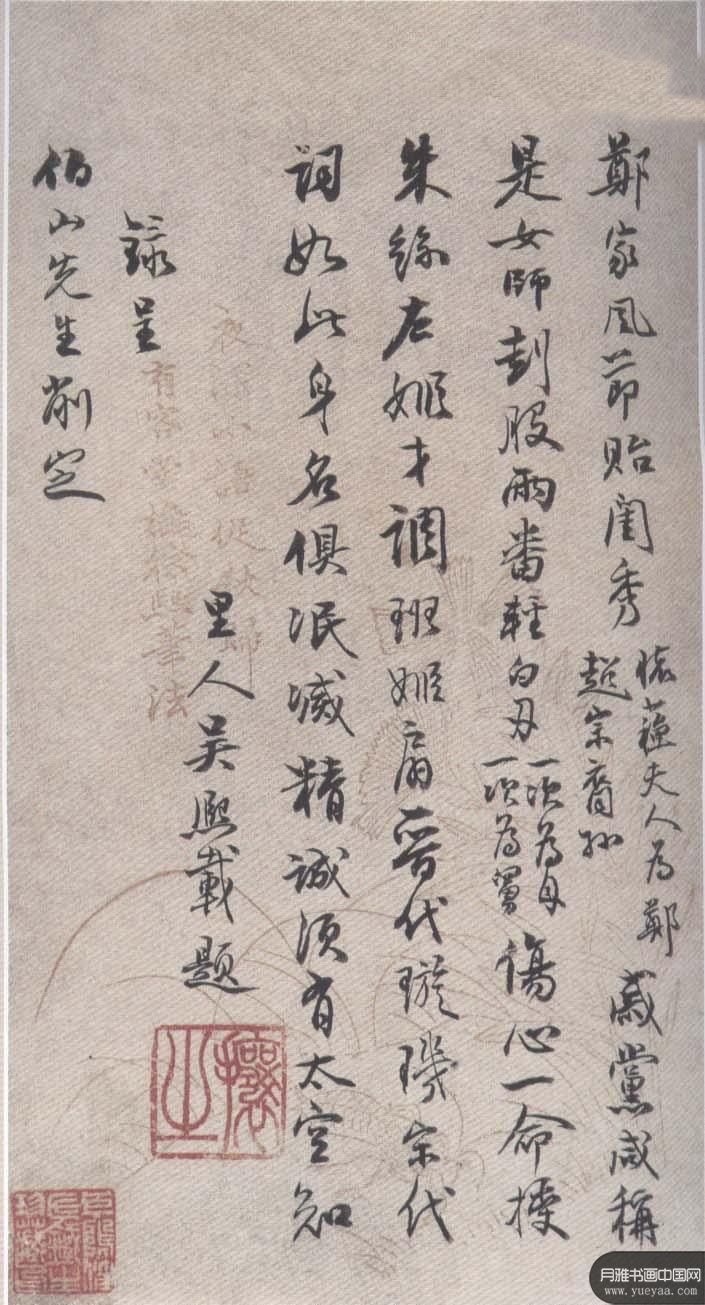 鄭家風節貽閨秀
懷蘐夫人為鄭
超宗裔孫
戚黨咸稱
是女師刲股兩番輕白刃
一次為母
一次為舅
傷心一命
朱絲左嬪才調班姬扇晉代璇璣宋代
詞如此身名俱泯滅精誠須有太空知
里人吳熙載題
錄呈
伯山先生削定
有容堂橅徐熙筆法
攘之
月雅书画中国网
www.yueyaa.com